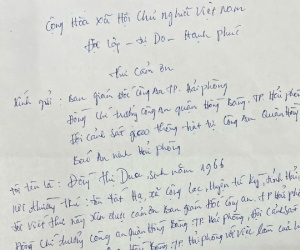 Cộng Hòa Xã Hội Chủ nghĩa Việt Nam
Độc lập - Tự Do - Hạnh phúc
Thư cảm ơn
Kính gửi: Ban giám đốc Công An TP. Hải phòng
Đồng chí trưởng Công an quận Hồng Bàng. TP Hải phòng
Đội cảnh sát giao thông - trật tự Công An Quận Hồng
Báo An ninh Hải phòng
tôi tên là: Đồng thị Dưa sinh năm 1966
nơi thường trú: tất Hạ, xã Cộng Lạc, Huyện tứ kỳ, tỉnh Hải
tôi viết thư này xin được cảm ơn Ban giám đốc Công an. TP Hải ph
Đồng Chí trưởng Công an quận Hồng Bàng TP Hải phòng, Đội cảnh sát
TP Hải phòng với việc làm của